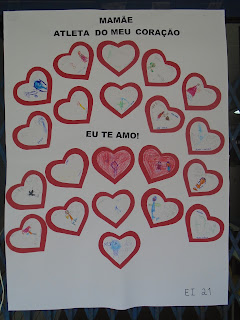 MAMÃE
ATLETA DO MEU CORAÇÃO
EU TE AMO!
EI 21